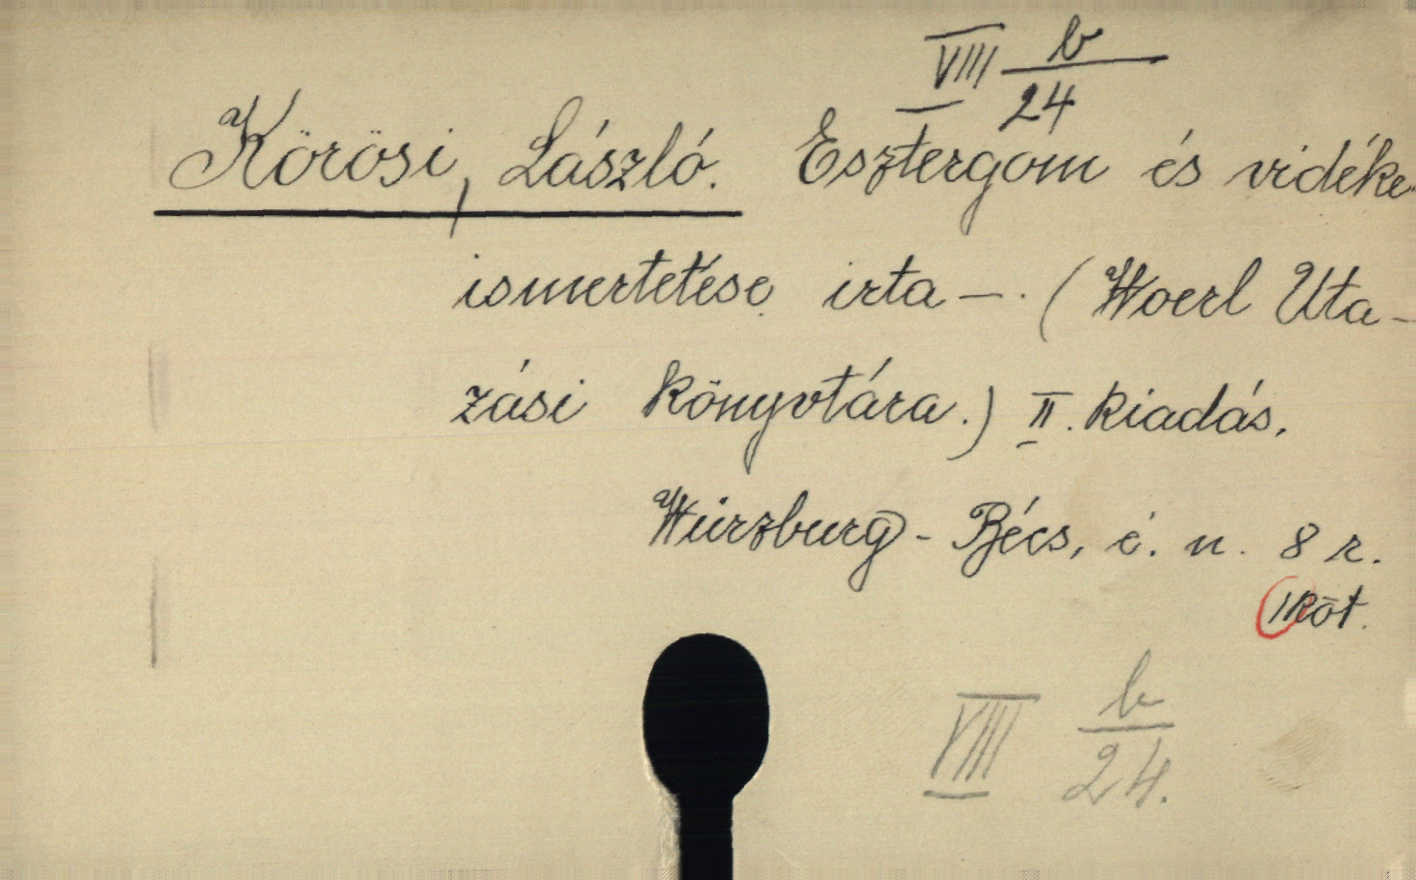 VIII b/24
Körösi, László. Esztergom és vidéke
ismertetése irta —. (Woerl Uta-
zási könyvtára.) II. kiadás.
Würzburg - Bécs, é. n. 8 r.
1 köt.
VIII b/24.